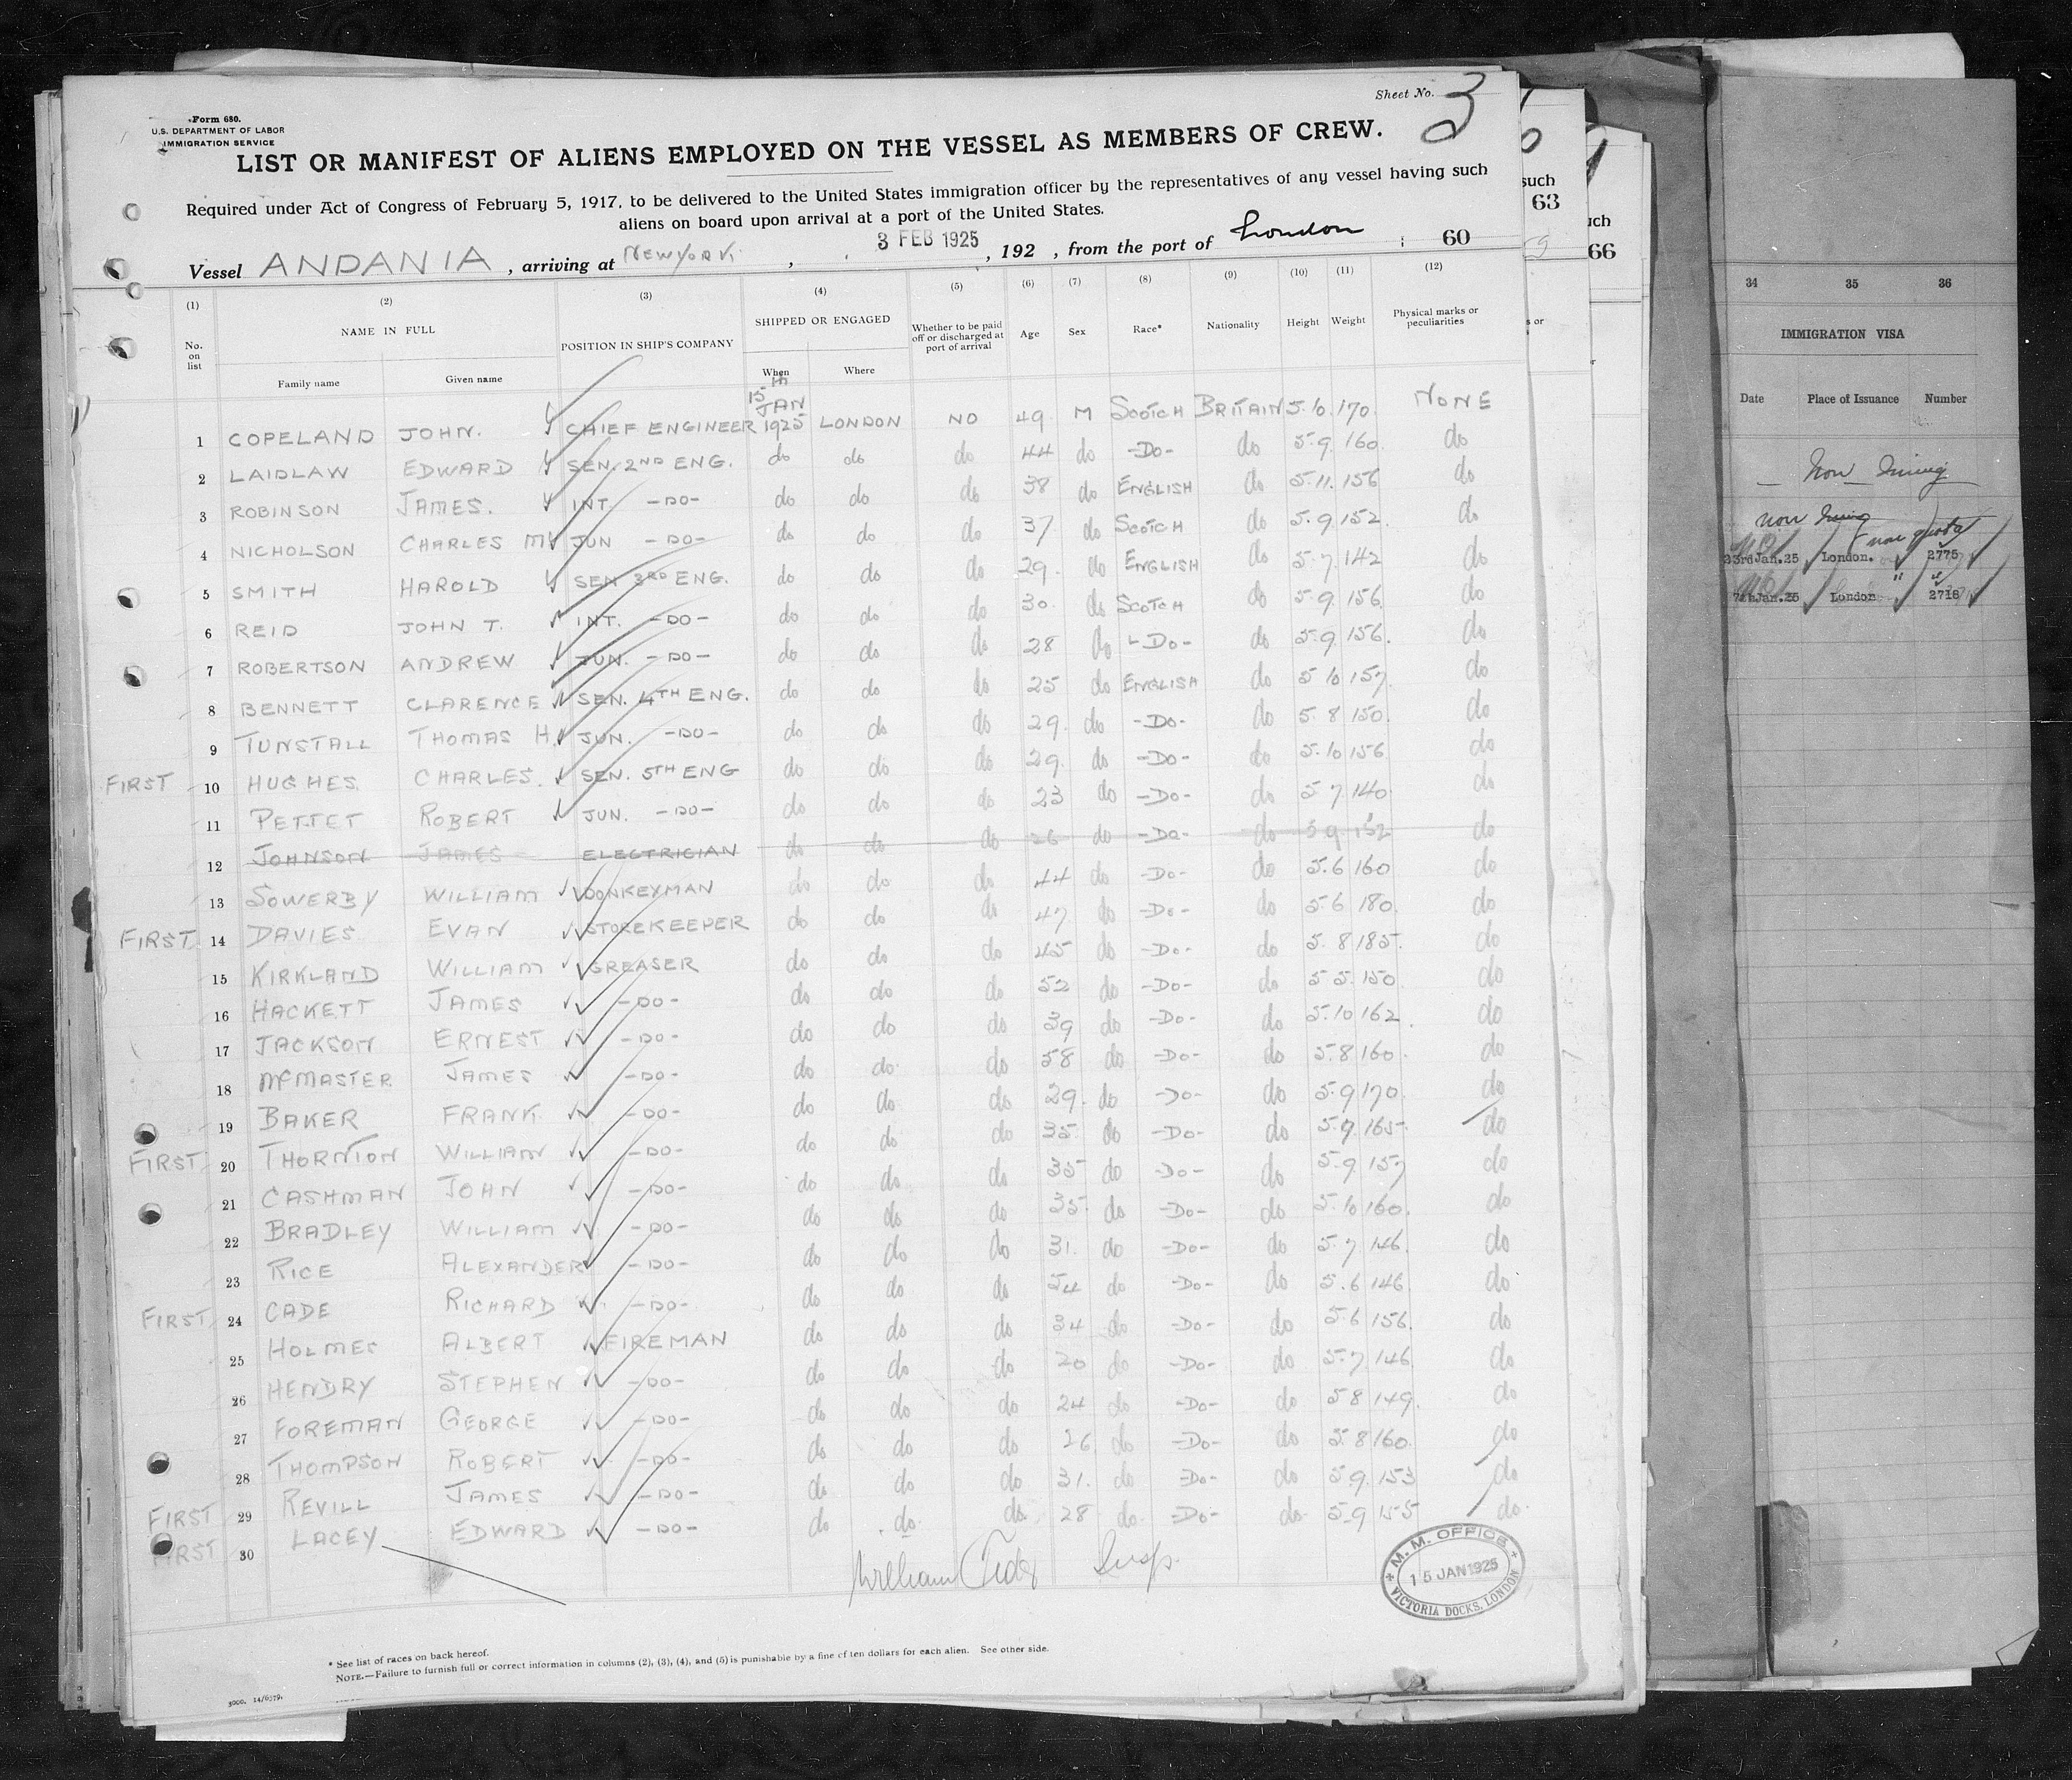 Sheet No. 3
Form 680.
U.S. DEPARTMENT OF LABOR
IMMIGRATION SERVICE
LIST OR MANIFEST OF ALIENS EMPLOYED ON THE VESSEL AS MEMBERS OF CREW.
Required under Act of Congress of February 5, 1917, to be delivered to the United States immigration officer by the representatives of any vessel having such
aliens on board upon arrival at a port of the United States.
Vessel ANDANIA, arriving at NEW YORK, 3 FEB 1925, 192 , from the port of London 60
(1) (2) (3) (4) (5) (6) (7) (8) (9) (10) (11) (12)
No. on list NAME IN FULL Family name Given name POSITION IN SHIP'S COMPANY SHIPPED OR ENGAGED When Where Whether to be paid off or discharged at port of arrival Age Sex Race* Nationality Height Weight Physical marks or peculiarities
1 COPELAND JOHN. CHIEF ENGINEER 15th JAN 1925 LONDON NO 49 M SCOTCH BRITAIN 5.10. 170. NONE
2 LAIDLAW EDWARD SEN. 2ND ENG. do do do 44 do -DO- do 5.9. 160. do
3 ROBINSON JAMES. INT. -DO- do do do 38 do ENGLISH do 5.11. 156 do
4 NICHOLSON CHARLES M JUN -DO- do do do 37 do SCOTCH do 5.9 152. do
5 SMITH HAROLD SEN 3RD ENG. do do do 29. do ENGLISH do 5.7. 142 do
6 REID JOHN T. INT. -DO- do do do 30. do SCOTCH do 5.9. 156. do
7 ROBERTSON ANDREW JUN. -DO- do do do 28 do -DO- do 5.9. 156. do
8 BENNETT CLARENCE SEN. 4TH ENG. do do do 25 do ENGLISH do 5 10 157. do
9 TUNSTALL THOMAS H. JUN. -DO- do do do 29. do -DO- do 5.8 150. do
FIRST 10 HUGHES. CHARLES. SEN. 5TH ENG do do do 29. do -DO- do 5.10 156 do
11 PETTET ROBERT JUN. -DO- do do do 23 do -DO- do 5 7 140. do
12 JOHNSON JAMES ELECTRICIAN do do do 26 do -DO- do 5 9 152 do
13 SOWERBY WILLIAM DONKEYMAN do do do 44 do -DO- do 5.6 160 do
FIRST 14 DAVIES EVAN STOREKEEPER do do do 47 do -DO- do 5.6 180. do
15 KIRKLAND WILLIAM GREASER do do do 45 do -DO- do 5. 8 185. do
16 HACKETT JAMES -DO- do do do 52 do -DO- do 5 5. 150 do
17 JACKSON ERNEST -DO- do do do 39 do -DO- do 5.10 162. do
18 McMASTER JAMES -DO- do do do 58 do -DO- do 5.8 160. do
19 BAKER FRANK. -DO- do do do 29. do -DO- do 5.9 170. do
FIRST 20 THORNTON WILLIAM -DO- do do do 35 do -DO- do 5.9. 165. do
21 CASHMAN JOHN -DO- do do do 35 do -DO- do 5.9. 157 do
22 BRADLEY WILLIAM -DO- do do do 35. do -DO- do 5.10 160. do
23 RICE ALEXANDER -DO- do do do 31. do -DO- do 5.7. 146. do
FIRST 24 CADE RICHARD -DO- do do do 54 do -DO- do 5.6 146. do
25 HOLMES ALBERT FIREMAN do do do 34 do -DO- do 5.6 156. do
26 HENDRY STEPHEN -DO- do do do 20 do -DO- do 5.7 146. do
27 FOREMAN GEORGE -DO- do do do 24 do -DO- do 5 8 149. do
28 THOMPSON ROBERT -DO- do do do 26 do -DO- do 5.8 160. do
FIRST 29 REVILL JAMES -DO- do do do 31. do -DO- do 5.9. 153 do
FIRST 30 LACEY EDWARD -DO- do do do 28 do -DO- do 5.9 155 do
M. M. OFFICE
15 JAN 1925
VICTORIA DOCKS, LONDON
* See list of races on back hereof.
NOTE.—Failure to furnish full or correct information in columns (2), (3), (4), and (5) is punishable by a fine of ten dollars for each alien. See other side.
3000. 14/6579.
such
63
uch
66
s or
34 35 36
IMMIGRATION VISA
Date Place of Issuance Number
non quota
23rd Jan. 25 London. 2775
7th Jan. 25 London " 2718